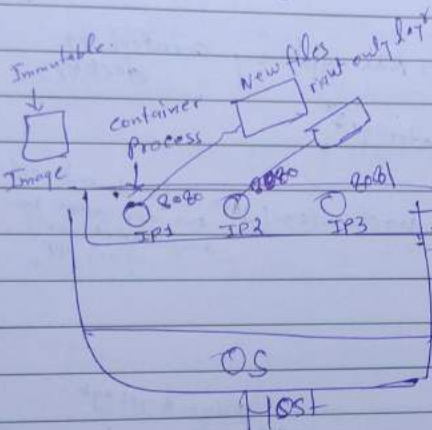 Immutable.
Image
container
process
New files
only layer
8080
8080
8081
IP1
IP2
IP3
OS
Host